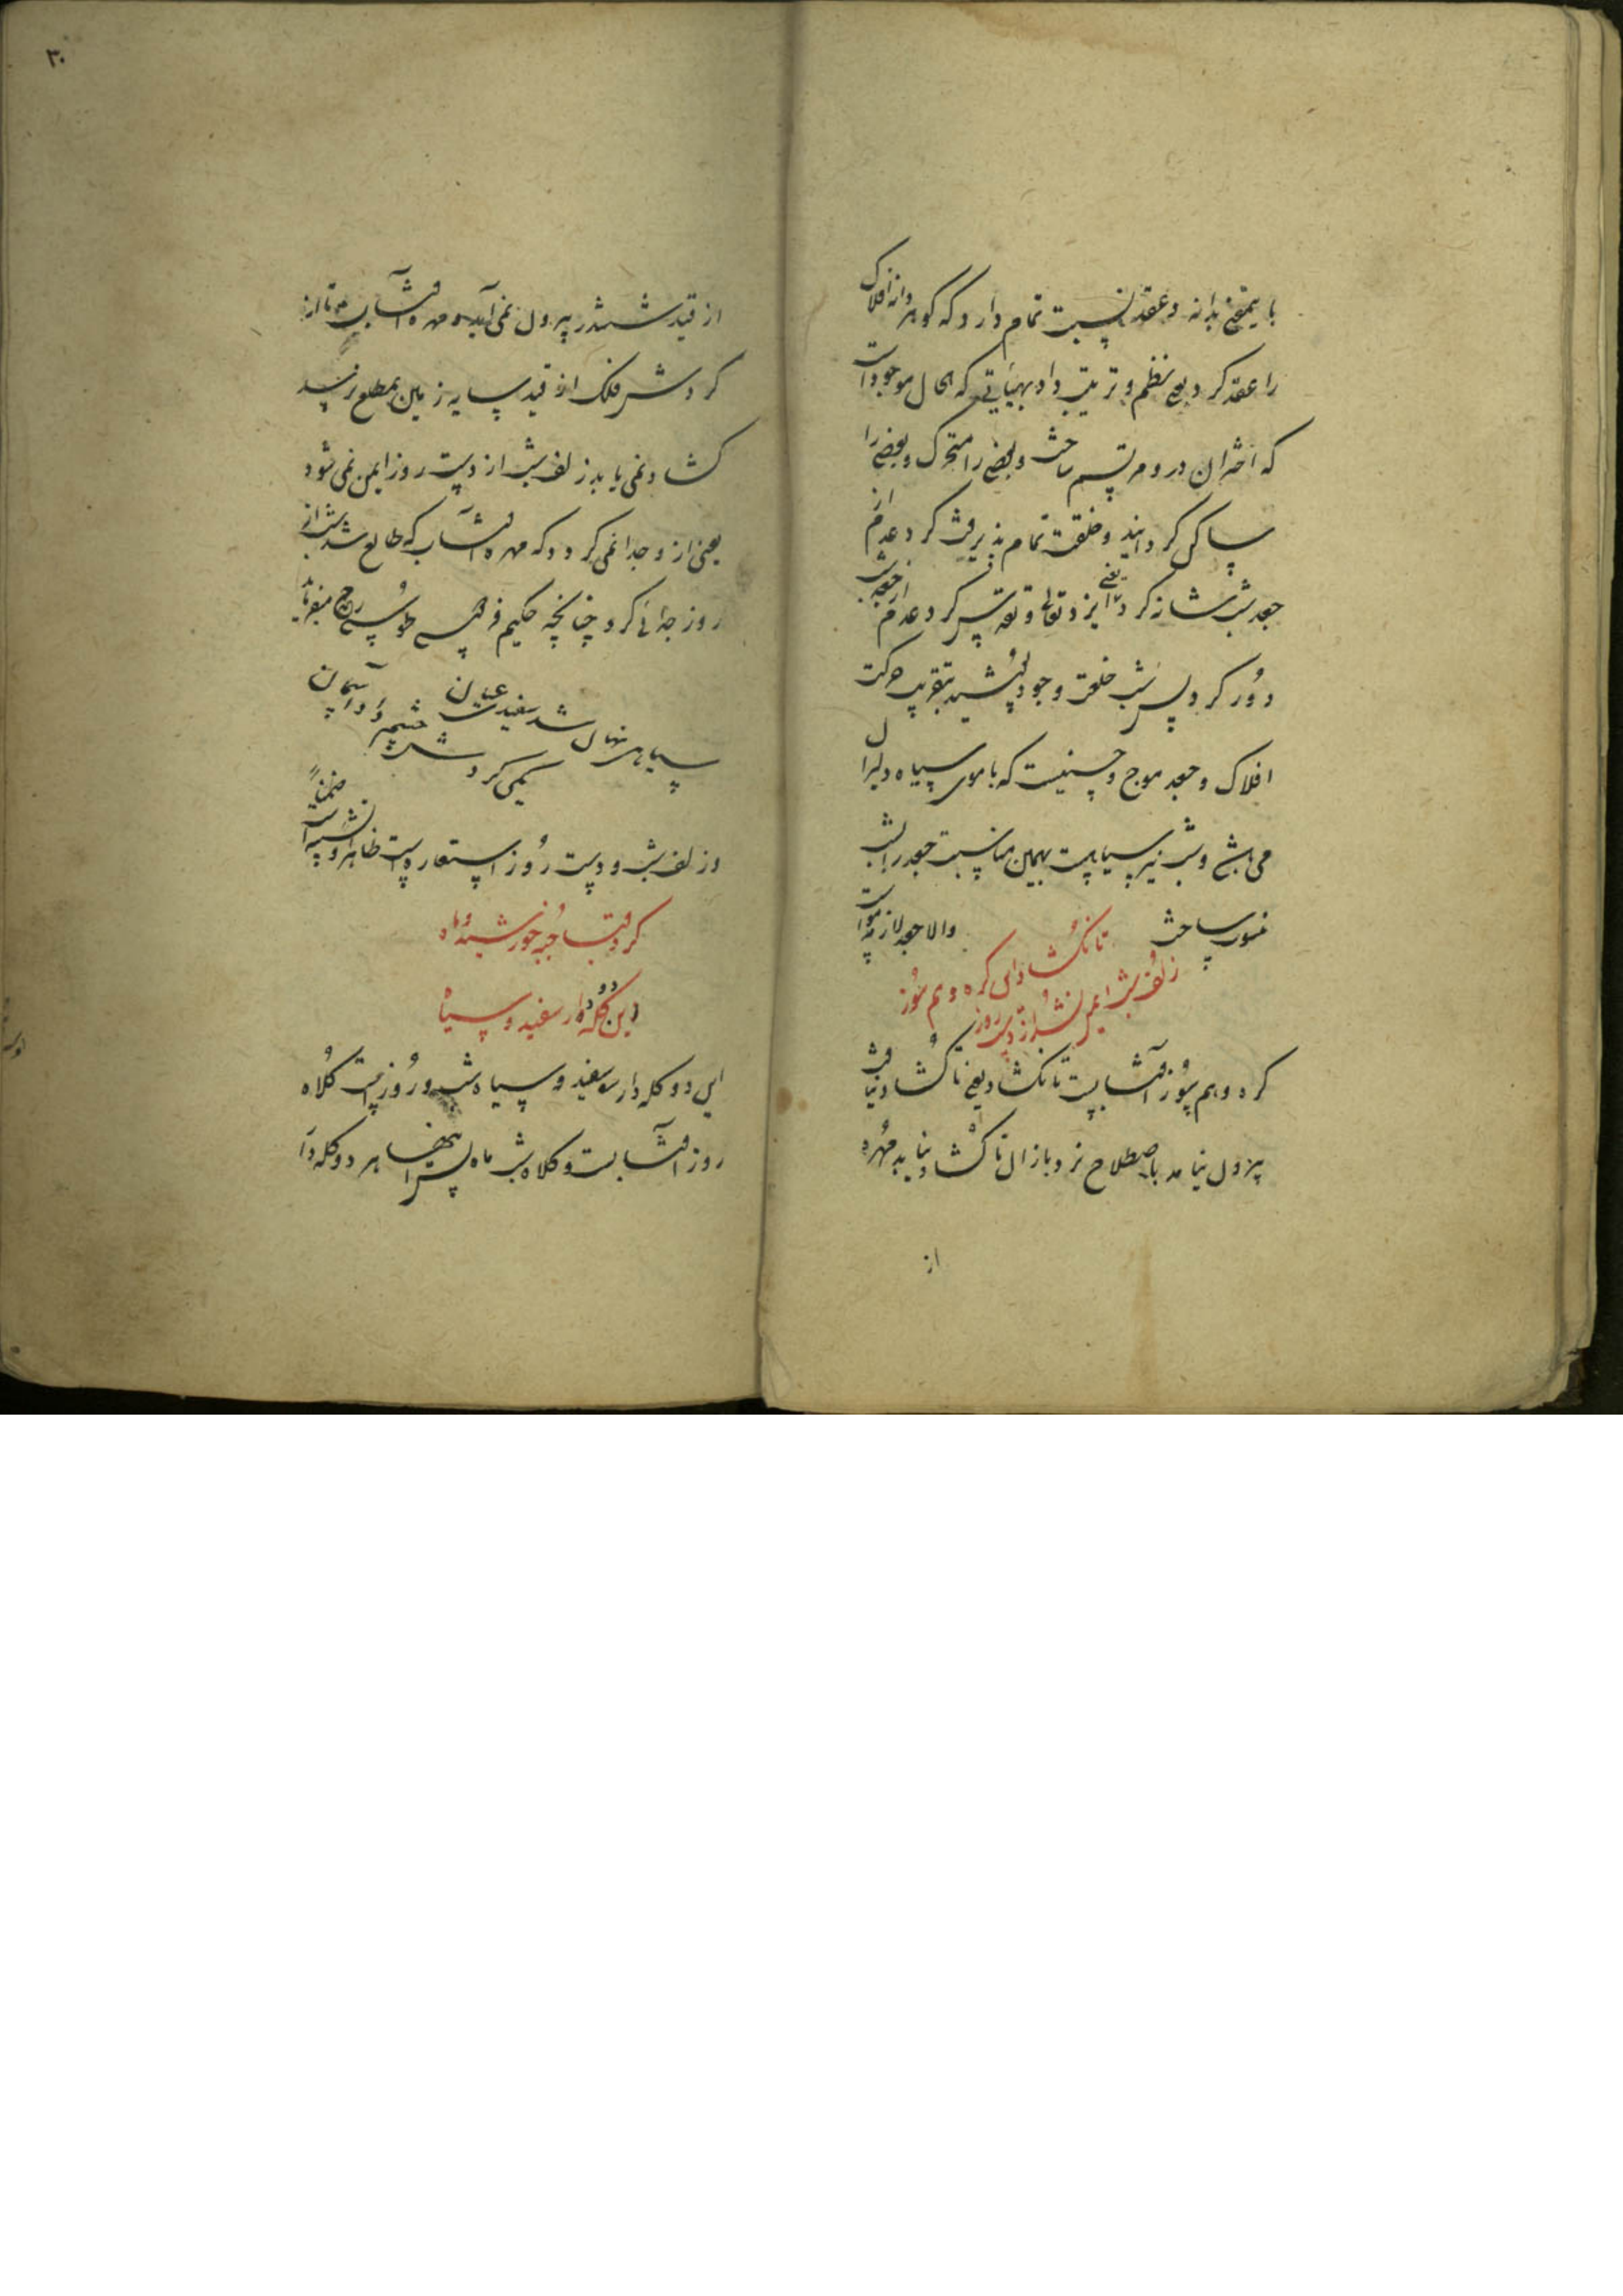 بایمعنی بدانه و عقد نسبت تمام دارد که گوهر دانه افلاک
را عقد کرد یعنی نظم و ترتیب داد بهیأتی که الحال موجودات
که اختران درو مرتسم ساخت و بعضی را متحرک و بعضی را
ساکن گردانید و خلقت تمام پذیرفت گرد عدم از
جعد شب شانه کرد یعنی ایزد تعالی و تقدس گرد عدم از جعد شب
دور کرد پس شب خلعت وجود پوشید بتقریب حرکت
افلاک و جعد موج که با موی سیاه دلبران
می باشد و شب نیز سیاهست بهمین مناسبت جعد را بشب
منسوب ساخت والا جعد لازمه
تا نگشاد این گره وهم سوز
زلف شب ایمن نشد از دست روز
گره وهم سوز آفتابست تا نگشاد یعنی تا گشاد نیافت
بیرون نیامد باصطلاح نرد بازان تا گشاد نیابد مهره
از
۳۰
از قید ششدر بیرون نمی آید و مهره آفتاب تا از
گردش فلک از قید سایه زمین بمطلع نرسد
گشاد نمی یابد زلف شب از دست روز ایمن نمی شود
یعنی ازو جدا نمی گردد که مهره آفتاب که طالع شد شب از
روز جدائی کرد چنانچه حکیم فردوسی طوسی رح میفرماید
سیاهی نهان شد سفیدی عیان
یکی گردش چشمه در آسمان
و زلف شب و دست روز استعاره است ظاهرا و ضمناً
کرد قبا جبه خورشید و ماه
زین دو کله دار سفید و سیاه
این دو کله دار سفید و سیاه شب و روز است کلاه
روز آفتابست و کلاه شب ماه پس اینها هر دو کله دار